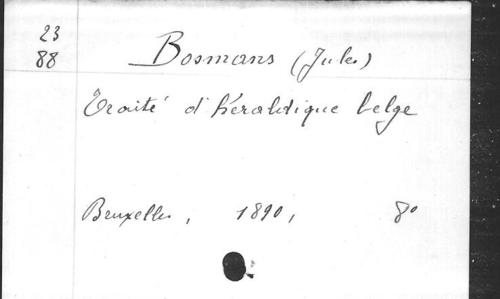 23
88
Bosmans (Jules)
Traité d'héraldique belge
Bruxelles, 1890, 8º